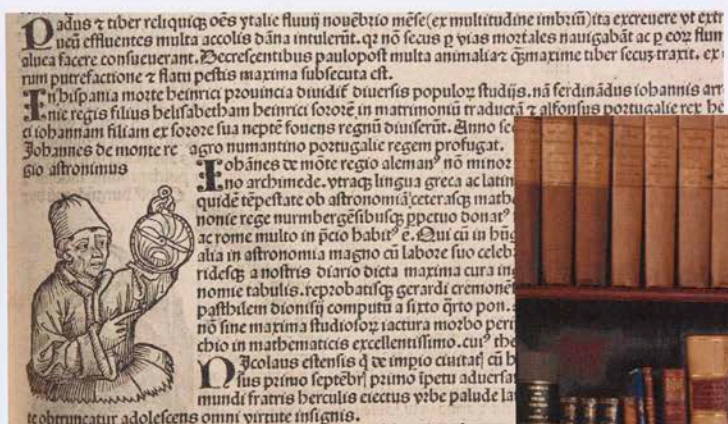 Padus ⁊ tiber reliquiqꝫ oẽs ytalie fluuij nouẽbrio mẽse (ex multitudine imbriũ) ita excreuere vt extr
ueũ effluentes multa accolis dãna intulerũt. qr nõ secus ꝑ vias mortales nauigabãt ac ꝑ eoꝝ flum
aluea facere consueuerant. Decrescentibus paulopost multa animalia ⁊ qꝫmaxime tiber secuꝫ traxit. ex
rum putrefactione ⁊ flatu pestis maxima subsecuta est.
In hispania morte heinrici prouincia diuidit̃ diuersis populoꝝ studijs. nã ferdinãdus iohannis arr
nie regis filius helisabetham heinrici sororẽ in matrimoniũ traductã ⁊ alfonsus portugalie rex he
ci iohannam filiam ex sorore sua neptẽ fouens regnũ diuiserũt. Anno se
agro numantino portugalie regem profugat.
Johannes de monte re
gio astronimus
Iohãnes de mõte regio alemanꝰ nõ minor
no archimede. vtraqꝫ lingua greca ac latin
quidẽ tẽpestate ob astronomiã ceterasqꝫ math
nonie rege nurmbergẽsibusqꝫ ꝑpetuo donatꝰ
ac rome multo in p̃cio habitꝰ e. Qui cũ in hũg
alia in astronomia magno cũ labore suo celeb
ridesqꝫ a nostris diario dicta maxima cura in
nomie tabulis. reprobatisqꝫ gerardi cremonẽ
pasthilem dionisij computũ a sixto q̃rto pon.
nõ sine maxima studiosoꝝ iactura morbo peri
chio in mathematicis excellentissimo. cuiꝰ the
Nicolaus estensis q̃ de impio ciuitat̃ cũ h
sus primo septẽbr̃ primo ĩpetu aduersa
mundi fratris herculis eiectus vrbe palude la
te obtruncatur adolescens omni virtute insignis.